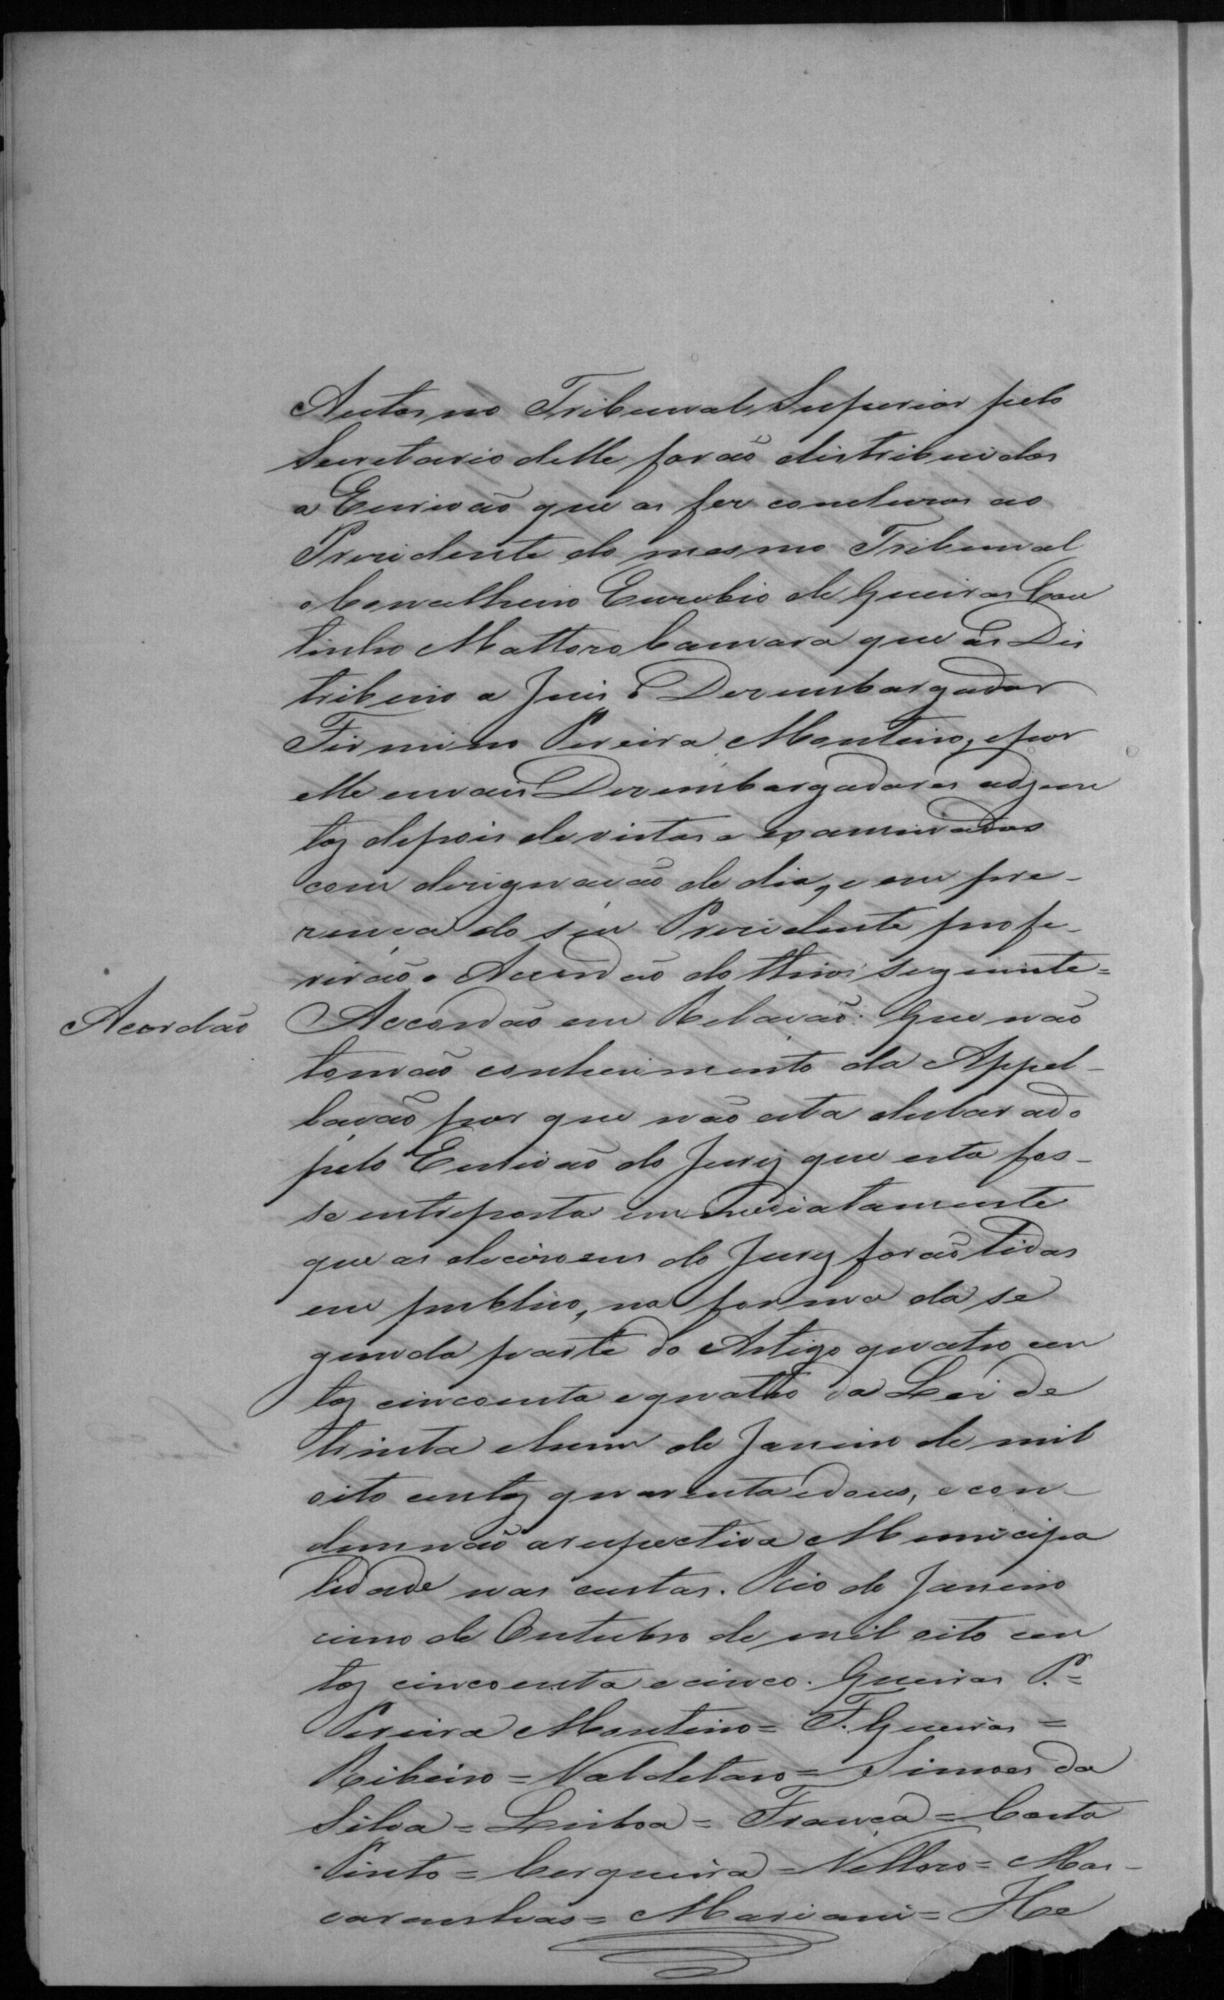 Autos, no Tribunal Superior pelo
Secretario delle forão distribuidos
a Escrivão que os fez conclusos ao
Presidente do mesmo Tribunal
o Conselheiro Euzebio de Queiros Cou
tinho Mattoso Camara que os Dis
tribuio a Juis o Desembargador
Firmino Pereira Monteiro, e por
elle e mais Desembargadores adjun
tos depois de vistos e examinados
com designação de dia, e em pre-
zença do seu Presidente profe-
rirão o Acordão do theor seguinte =
Acordão
Accordão em Relação: Que não
tomão conhecimento da Appel-
lação por que não esta declarado
pelo Escrivão do Jury que esta fos-
se entreposta immediatamente
que as decisoens do Jury forão lidas
em publico, na forma da se
gunda parte do Artigo quatro cen
tos cincoenta e quatro da Lei de
trinta e hum de Janeiro de mil
oito centos quarenta e dous, e con-
demnão a respectiva Municipa
lidade nas custas. Rio de Janeiro
cinco de Outubro de mil oito cen
tos cincoenta e cinco. Queiros P. =
Pereira Monteiro = F. Queiros =
Ribeiro = Valdetaro = Simoes da
Silva = Lisboa = França = Costa
Pinto = Cerqueira = Velloso = Mas-
carenhas = Mariani = He